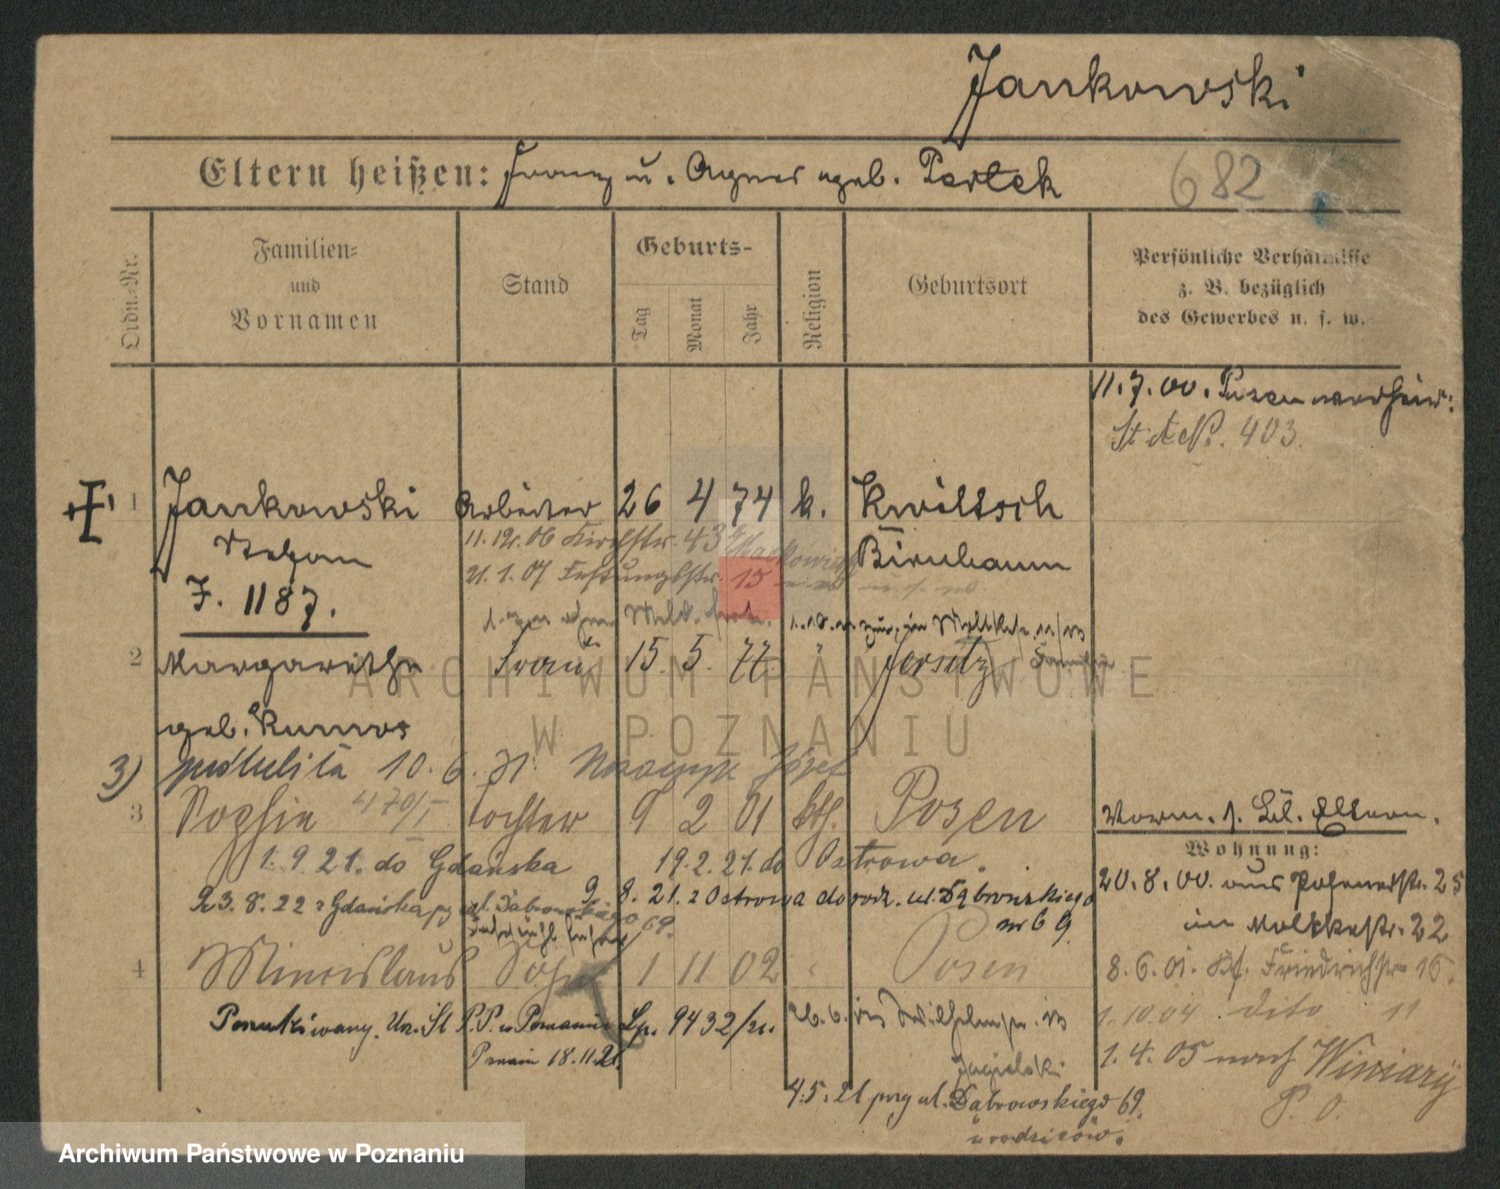 Jankowski
Eltern heißen: Franz u. Agnes geb. Partek
682
Ordn.-Nr.
Familien-
und
Vornamen
Stand
Geburts-
Tag
Monat
Jahr
Religion
Geburtsort
Persönliche Verhältnisse
z. B. bezüglich
des Gewerbes u. s. w.
11.7.00. Posen
St. A. No. 403.
1 Jankowski Arbeiter 26 4 74 k. Kwiltsch
Stefan 11.12.06 Kirchstr. 43
Birnbaum
21.1.07 Festungsstr. 15
J. 1187.
2 Margarethe Frau 15 5. 77. " Jersitz
geb.
3) poślubiła 10.6. Józef
3 Sophie tochter 9 2 01 kth. Posen
Vorm. s. Bl. Eltern.
Wohnung:
1.9.21. do Gdańska 19.2.21. do Ostrowa.
20.8.00. aus Posenerstr. 25
23.8.22 z Gdańska ul. Dąbrowskiego 69.
9.8.21. z Ostrowa do rodz. ul. Dąbrowskiego
nr 69.
in Moltkestr. 22
4 Miecislaus Sohn 1 11 02 " Posen
8.6.01. Friedrichstr. 16.
Poszukiwany. Urz. St P.P. w Poznaniu Lp. 9432/21.
1.10.04. dito 11
Poznań 18.11.21.
1.4.05 nach Winiary
P. O.
Jagielski
4.5.21 przy ul. Dąbrowskiego 69.
u rodziców.
ARCHIWUM PAŃSTWOWE
W POZNANIU
Archiwum Państwowe w Poznaniu